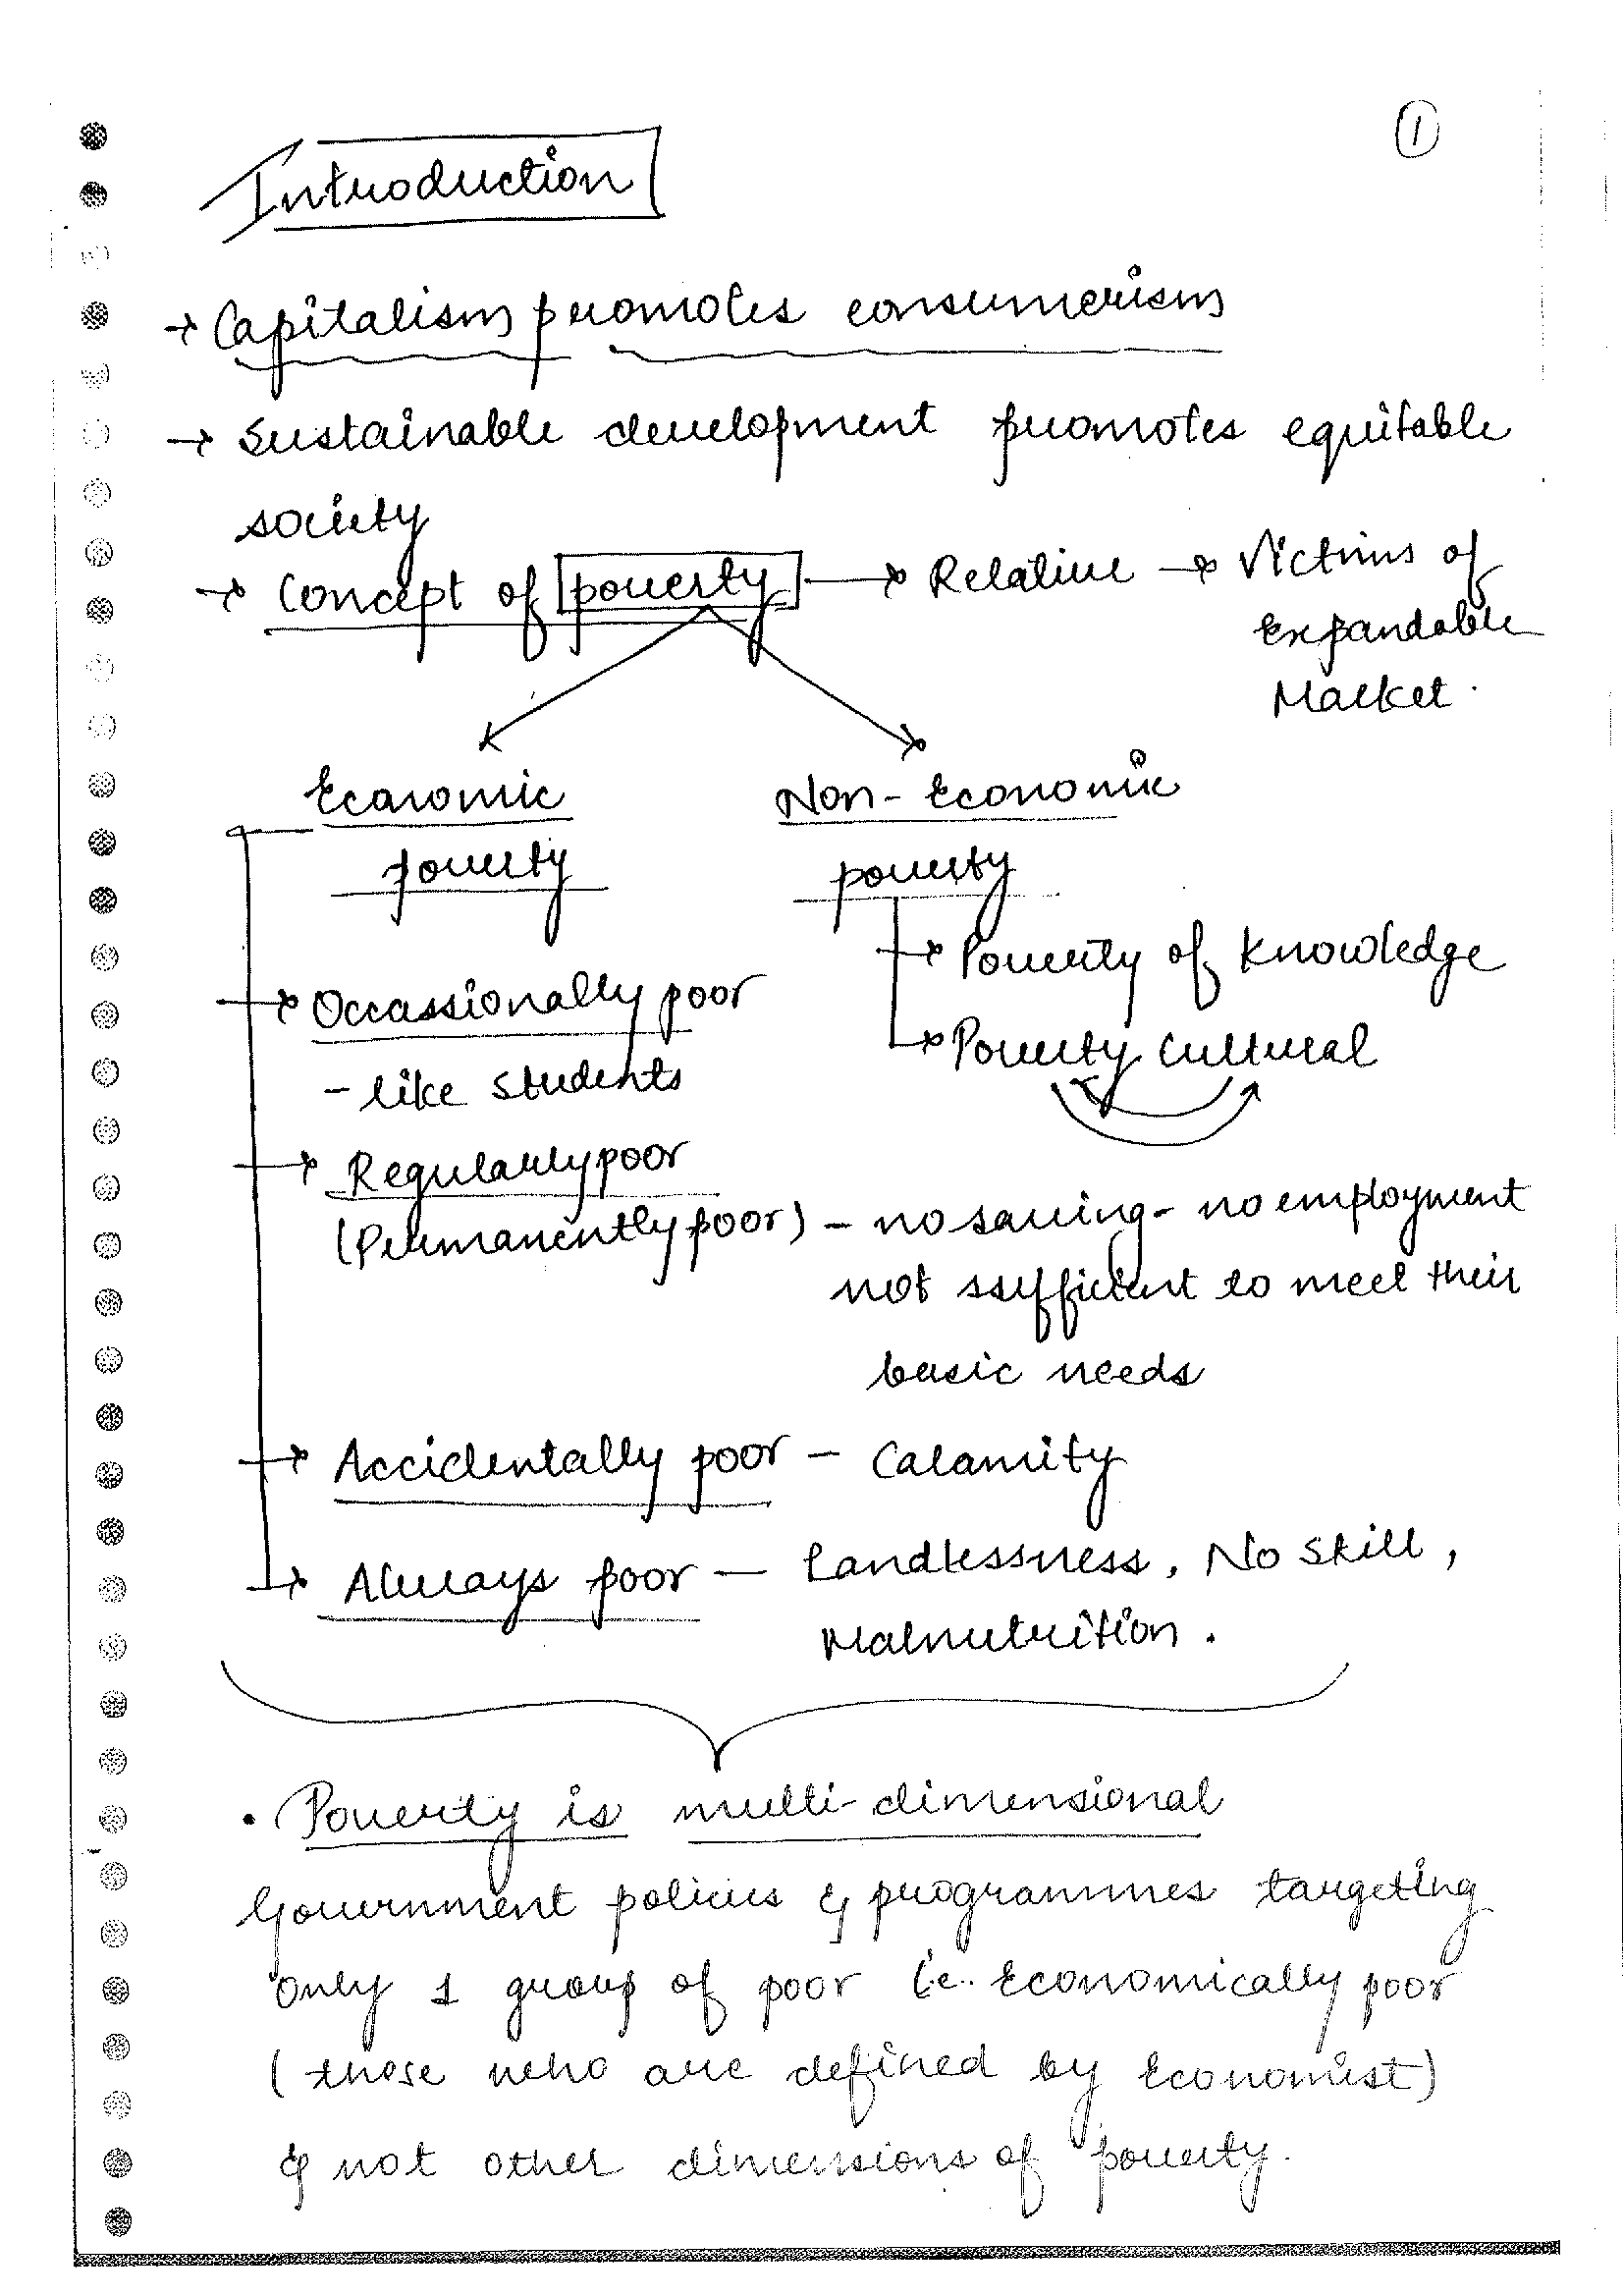 1
Introduction
→ Capitalism promotes consumerism
→ Sustainable development promotes equitable
society
→ Concept of poverty → Relative → Victims of
Expandable
Market.
Economic
poverty
Non-Economic
poverty
→ Poverty of Knowledge
→ Poverty Cultural
→ Occassionally poor
- like students
→ Regularly poor
(Permanently poor) - no saving - no employment
not sufficient to meet their
basic needs
→ Accidentally poor - Calamity
→ Always poor - Landlessness, No Skill,
Malnutrition.
• Poverty is multi-dimensional
Government policies & programmes targeting
only 1 group of poor i.e. Economically poor
(those who are defined by Economist)
& not other dimensions of poverty.